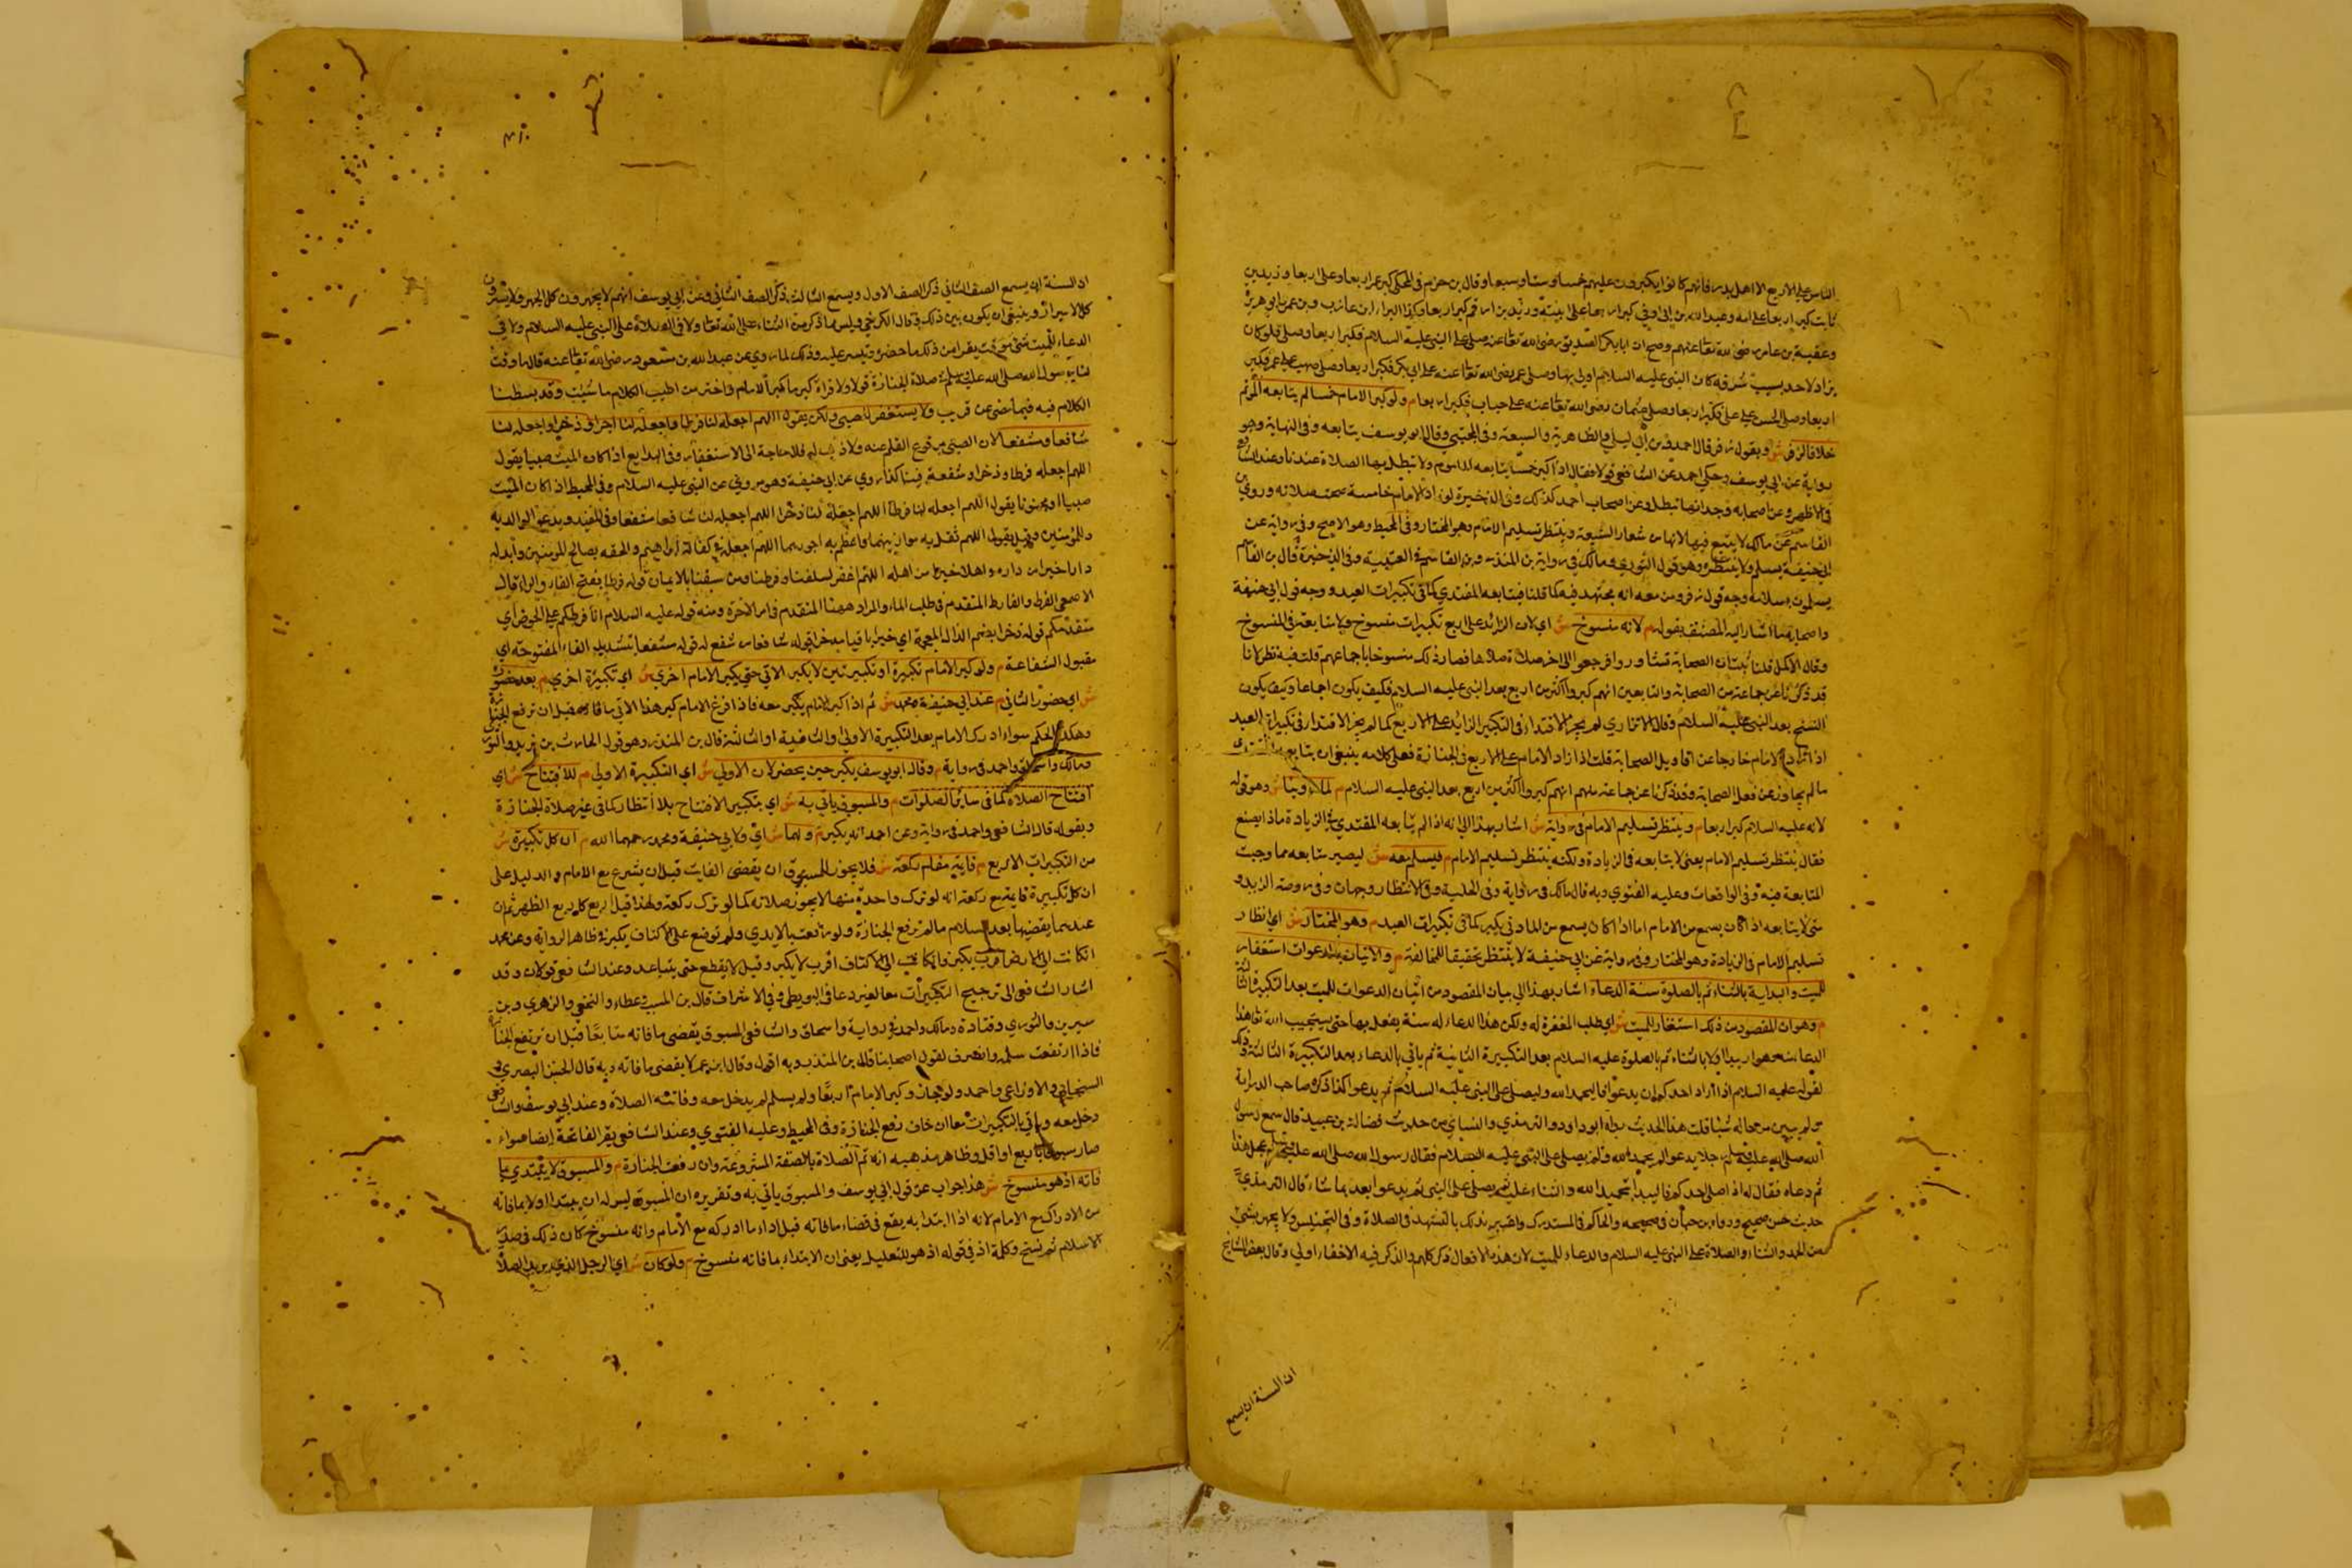 الناس على الاربع الا اهل بدر فانهم كانوا يكبرون عليهم خمسا وستا وسبعا وقال بن حزم في المحلى كبر عمر اربعا وعلى اربعا وزيد بن
ثابت كبر اربعا على امه وعبد الله بن ابي اوفى كبر اربعا على ابنته وزيد بن ارقم كبر اربعا وكذا البراء بن عازب وبن عمر وابو هريرة
وعقبة بن عامر رضى الله تعا عنهم وصح ان ابا بكر الصديق رضى الله تعا عنه صلى على النبى عليه السلام فكبر اربعا وصلى فلو كان
يزاد لاحد بسبب شرفه كان النبى عليه السلام اولى بها وصلى عمر رضى الله تعا عنه على ابي بكر فكبر اربعا وصلى صهيب على عمر فكبر
اربعا وصلى الحسن على على فكبر اربعا وصلى عثمان رضى الله تعا عنه على خباب فكبر اربعا م ولو كبر الامام خمسا لم يتابعه المؤتم
خلافا لزفر ش وبقول زفر قال احمد وبن ابي ليلى والظاهرية والشيعة وفى المجتبى وقال ابو يوسف يتابعه وفى النهاية وهو
رواية عن ابي يوسف وحكى احمد عن الشافعى قولا فقال اذا كبر خمسا يتابعه الماموم ولا تبطل بها الصلاة عندنا وعند الشافعى
فى الاظهر وعن اصحابه وجد انها تبطل وعن اصحاب احمد كذلك وفى الذخيرة لو زاد الامام خامسة صحت صلاته وروى بن
القاسم عن مالك لا يتبع فيها لانها من شعار الشيعة وينتظر تسليم الامام وهو المختار وفى المحيط وهو الاصح وفى رواية عن
ابي حنيفة يسلم ولا ينتظره وهو قول الثوري ومالك فى رواية بن المنذر وبن القاسم فى العتبية وفى الذخيرة قال بن القاسم
يسلمون بسلامه وجه قول زفر ومن معه انه مجتهد فيه كما قلنا فيتابعه المقتدي كما فى تكبيرات العيد ووجه قول ابي حنيفة
واصحابه ما اشار اليه المصنف بقوله م لانه منسوخ ش اي لان الزائد على اربع تكبيرات منسوخ ولا متابعة فى المنسوخ
وقال الاكمل قلنا ثبت ان الصحابة تشاوروا فرجعوا الى اخر صلاة صلاها فصار ذلك منسوخا باجماعهم قلت فيه نظر لانا
قد ذكرنا عن جماعة من الصحابة والتابعين انهم كبروا اكثر من اربع بعد النبى عليه السلام فكيف يكون اجماعا وكيف يكون
النسخ بعد النبى عليه السلام وقال الاترازي لم يجز الاقتداء فى التكبير الزائد على الاربع كما لم يجز الاقتداء فى تكبيرات العيد
اذا زاد الامام خارجا عن اقاويل الصحابة قلت اذا زاد الامام على الاربع فى الجنازة فعلى كلامه ينبغى ان يتابع
ما لم يجاوز عن فعل الصحابة وقد ذكرنا عن جماعة منهم انهم كبروا اكثر من اربع بعد النبى عليه السلام م لما روينا ش وهو قوله
لانه عليه السلام كبر اربعا م وينتظر تسليم الامام فى رواية ش اشار بهذا الى انه اذا لم يتابعه المقتدي فى الزيادة ماذا يصنع
فقال ينتظر تسليم الامام يعنى لا يتابعه فى الزيادة ولكنه ينتظر تسليم الامام م فيسلم معه ش ليصير متابعه مما وجبت
المتابعة فيه وفى الواقعات وعليه الفتوى وبه قال مالك فى رواية وفى الحلية وفى الانتظار وجهان وفى روضة الزندو
متى لا يتابعه اذا كان يسمع من الامام اما اذا كان يسمع من المنادى يكبر كما فى تكبيرات العيد م وهو المختار ش اي انتظار
تسليم الامام فى الزيادة وهو المختار وفى رواية عن ابي حنيفة لا ينتظر تحقيقا للمخالفة م والاتيان بالدعوات استغفار
للميت والبداية بالثناء ثم بالصلوة سنة الدعاء اشار بهذا الى بيان المقصود من اتيان الدعوات للميت بعد التكبيرة الثالثة
م وهو ان المقصود من ذلك استغفار للميت ش اي طلب المغفرة له ولكن هذا الدعاء له سنة يفعل بها حتى يستجيب الله تعا هذا
الدعا منه وهو ان يبدا اولا بالثناء ثم بالصلوة عليه السلام بعد التكبيرة الثانية ثم ياتي بالدعاء بعد التكبيرة الثالثة وذلك
لقوله عليه السلام اذا اراد احدكم ان يدعو فاليحمد الله وليصلى على النبى عليه السلام ثم يدعوا كذا ذكره صاحب الدراية
ولم يبين من حاله شيا قلت هذا الحديث رواه ابو داود والترمذي والنساي من حديث فضالة بن عبيد قال سمع رسول
الله صلى الله عليه وسلم رجلا يدعو لم يحمد الله ولم يصلى على النبى عليه السلام فقال رسول الله صلى الله عليه وسلم عجل هذا
ثم دعاه فقال له اذا صلى احدكم فاليبدا بتحميد الله والثناء عليه ثم يصلى على النبى ثم يدعوا بعد بما شاء قال الترمذي
حديث حسن صحيح ورواه بن حبان فى صحيحه والحاكم فى المستدرك والخبر بذلك بالتشهد فى الصلاة وفى التجنيس ولا يجهر بشيء
من الحمد والثناء والصلاة على النبى عليه السلام والدعاء للميت لان هذه الافعال ذكر كلهم والذكر فيه الاخفاء اولى وقال بعض المشايخ
ان السنة ان يسمع
ان السنة ان يسمع الصف الثاني ذكر الصف الاول ويسمع الثالث ذكر الصف الثاني وعن ابي يوسف انهم لا يجهرون كل الجهر ولا يسرون
كل الاسرار وينبغى ان يكون بين ذلك قال الكرخي وليس ما ذكر من الثناء على الله تعا ولا فى الصلاة على النبى عليه السلام ولا فى
الدعاء للميت شئ موقت يقرا من ذلك ما حضره وتيسر عليه وذلك لما روي عن عبد الله بن مسعود رضى الله تعا عنه قال ما وقت
لنا رسول الله صلى الله عليه وسلم فى صلاة الجنازة قولا ولا قراة كبر ما كبر الامام واختر من اطيب الكلام ما شئت وقد بسطنا
الكلام فيه فيما مضى عن قريب ولا يستغفر لصبى ولكن يقول اللهم اجعله لنا فرطا واجعله لنا اجرا وذخرا واجعله لنا
شافعا ومشفعا لان الصبى مرفوع القلم عنه ولا ذنب له فلا حاجة الى الاستغفار وفى البدايع اذا كان الميت صبيا يقول
اللهم اجعله فرطا وذخرا وشفعه فينا كذا روي عن ابي حنيفة وهو مروي عن النبى عليه السلام وفى المحيط اذا كان الميت
صبيا او مجنونا يقول اللهم اجعله لنا فرطا اللهم اجعله لنا ذخرا اللهم اجعله لنا شافعا مشفعا وفى المفيد ويدعوا لوالديه
والمؤمنين وقيل يقول اللهم ثقل به موازينهما واعظم به اجورهما اللهم اجعله فى كفالة ابراهيم والحقه بصالح المؤمنين وابدله
دارا خيرا من داره واهلا خيرا من اهله اللهم اغفر لسلفنا وفرطنا ومن سبقنا بالايمان قوله فرطا بفتح الفاء والراء قال
الاصمعى الفرط والفارط المتقدم فى طلب الماء والمراد ههنا المتقدم فى امر الاخرة ومنه قوله عليه السلام انا فرطكم على الحوض اي
متقدمكم قوله ذخرا بضم الذال المعجمة اي خيرا باقيا مدخرا قوله شافعا من شفع له قوله مشفعا بتشديد الفاء المفتوحة اي
مقبول الشفاعة م ولو كبر الامام تكبيرة او تكبيرتين لا يكبر الاتي حتى يكبر الامام اخرى ش اي تكبيرة اخرى م بعد حضوره
ش اي حضور الثاني م عند ابي حنيفة ومحمد ش ثم اذا كبر الامام يكبر معه فاذا فرغ الامام كبر هذا الاتي ما فاته قبل ان ترفع الجنازة
وهكذا الحكم سواء ادرك الامام بعد التكبيرة الاولى والثانية او الثالثة قال بن المنذر وهو قول الحارث بن يزيد والثوري
ومالك واسحاق واحمد فى رواية م وقال ابو يوسف يكبر حين يحضر لان الاولى ش اي التكبيرة الاولى م للافتتاح ش اي
افتتاح الصلاة كما فى سائر الصلوات م والمسبوق ياتي به ش اي بتكبير الافتتاح بلا انتظار كما فى غير صلاة الجنازة
وبقوله قال الشافعى واحمد فى رواية وعن احمد انه يكبر م ولهما ش اي ولابي حنيفة ومحمد رحمهما الله م ان كل تكبيرة ش
من التكبيرات الاربع م قايمة مقام ركعة ش فلا يجوز للمسبوق ان يقضى الفايت قبل ان يشرع مع الامام والدليل على
ان كل تكبيرة قايمة مع ركعة انه لو ترك واحدة منها لا يجوز صلاته كما لو ترك ركعة ولهذا قيل اربع كاربع الظهر ثم ان
عندهما يقضيها بعد السلام ما لم ترفع الجنازة ولو رفعت بالايدي ولم توضع على الاكتاف يكبر فى ظاهر الرواية وعن محمد
ان كانت الى الارض اقرب يكبر وان كانت الى الاكتاف اقرب لا يكبر وقيل لا يقطع حتى يتباعد وعند الشافعى قولان وقد
اشار الشافعى الى ترجيح التكبيرات معا لغير دعا فى البويطى وفى الاشراف قال بن المسيب وعطاء والنخعى والزهري وبن
سيرين والثوري وقتادة ومالك واحمد فى رواية واسحاق والشافعى المسبوق يقضى ما فاته متابعا قبل ان ترفع الجنازة
فاذا ارتفعت سلم وانصرف لقول اصحابنا قال بن المنذر وبه اقول وقال ابن عمر لا يقضى ما فاته وبه قال الحسن البصري و
السختياني والاوزاعى واحمد ولو جاز وكبر الامام اربعا ولم يسلم لم يدخل معه وفاتته الصلاة وعند ابي يوسف والشافعى
دخل معه وياتي بالتكبيرات معا ان خاف رفع الجنازة وفى المحيط وعليه الفتوى وعند الشافعى يقرا الفاتحة ايضا سواء
صار مسبوقا باربع او اقل وظاهر مذهبه انه تم الصلاة بالصفة المشروعة وان رفعت الجنازة م والمسبوق لا يبتدي بما
فاته اذ هو منسوخ ش هذا جواب عن قول ابي يوسف والمسبوق ياتي به وتقريره ان المسبوق ليس له ان يبتدا اولا بما فاته
من الادراك مع الامام لانه اذا ابتدا به يقع فى قضاء ما فاته قبل اداء ما ادركه مع الامام وانه منسوخ كان ذلك فى صدر
الاسلام ثم نسخ وكلمة اذ فى قوله اذ هو للتعليل يعنى ان الابتداء بما فاته منسوخ م ولو كان ش اي الرجل الذي يريد الصلاة